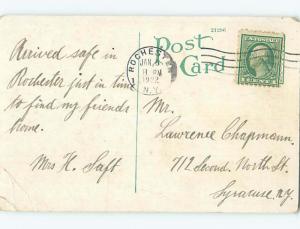 21256
Post Card
ROCHESTER
JAN 3
11 PM
1922
N.Y.
Arrived safe in
Rochester just in time
to find my friends
home.
Mrs H. Saft
Mr.
Lawrence Chapmann.
712 Second. North St.
Syracuse. N.Y.